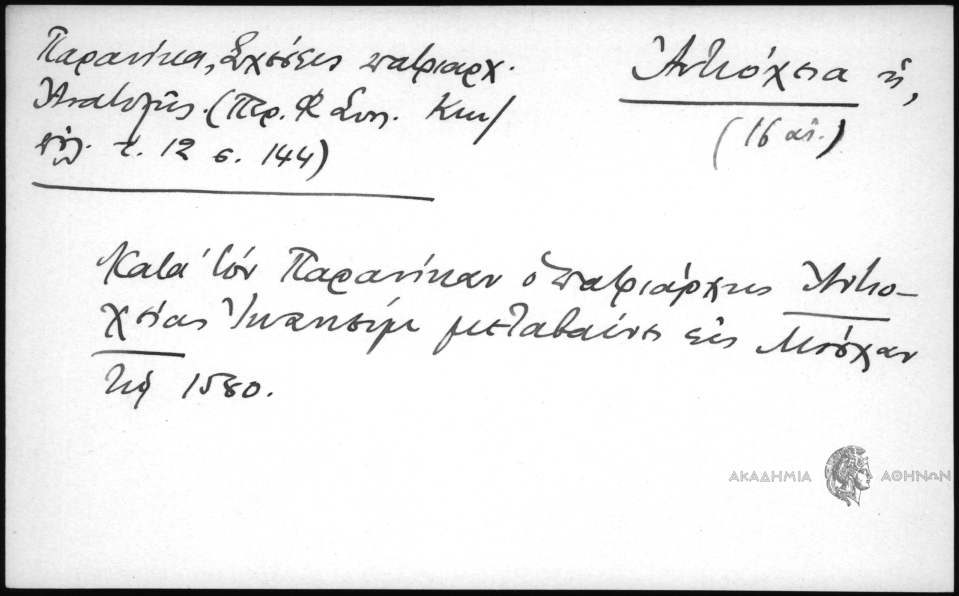 Παρανίκα, Σχέσεις πατριαρχ.
Ἀνατολῆς. (Περ. Φ Συλ. Κων/
πόλ. τ. 12 σ. 144)
Ἀντιόχεια ἡ,
(16 αἰ.)
Κατά τόν Παρανίκαν ὁ πατριάρχης Ἀντιο-
χείας μεταβαίνει εἰς Μόσχαν
τῷ 1580.
ΑΚΑΔΗΜΙΑ ΑΘΗΝΩΝ